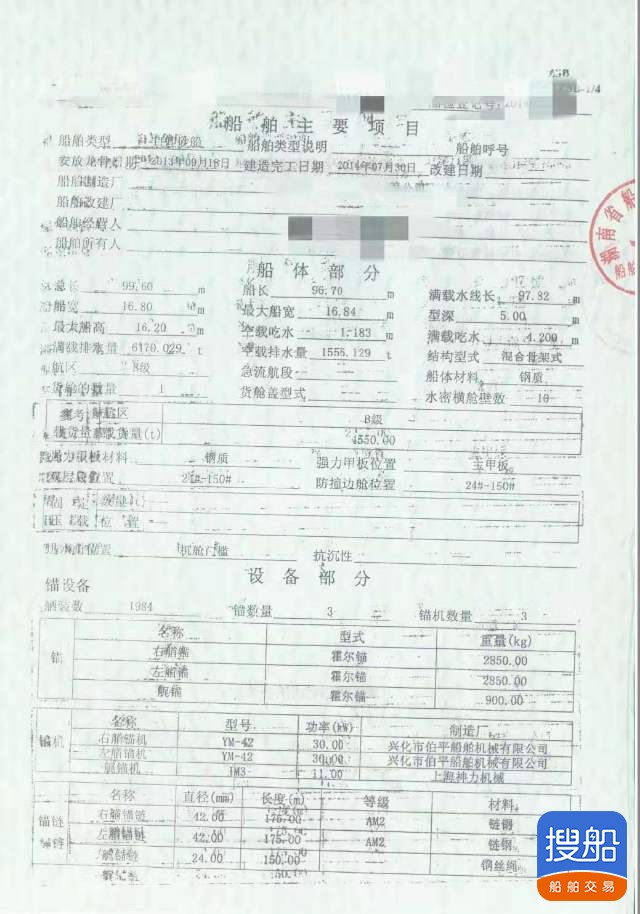 船舶主要项目
船舶类型 自卸砂船 船舶类型说明 船舶呼号
安放龙骨日期 2013年09月18日 建造完工日期 2014年07月30日 改建日期
船舶制造厂
船舶改建厂
船舶经营人
船舶所有人
船体部分
总长 99.60 m 船长 96.70 m 满载水线长 97.82 m
船宽 16.80 m 最大船宽 16.84 m 型深 5.00 m
最大船高 16.20 m 空载吃水 1.183 m 满载吃水 4.200 m
满载排水量 6170.029 t 空载排水量 1555.129 t 结构型式 混合骨架式
航区 B级 急流航段 船体材料 钢质
货舱的数量 1 货舱盖型式 水密横舱壁数 10
参考 航区 B级
载货量 载货量(t) 4550.00
材料 钢质 强力甲板位置 主甲板
位置 24#-150# 防撞边舱位置 24#-150#
压载位置
位置 机舱门槛 抗沉性
设备部分
锚设备
舾装数 1984 锚数量 3 锚机数量 3
锚 名称 型式 重量(kg)
右艏锚 霍尔锚 2850.00
左艏锚 霍尔锚 2850.00
艉锚 霍尔锚 900.00
锚机 名称 型号 功率(kW) 制造厂
右艏锚机 YM-42 30.00 兴化市伯平船舶机械有限公司
左艏锚机 YM-42 30.00 兴化市伯平船舶机械有限公司
艉锚机 YM3 11.00 上海神力机械
锚链 名称 直径(mm) 长度(m) 等级 材料
右艏锚链 42.00 175.00 AM2 链钢
左艏锚链 42.00 175.00 AM2 链钢
艉锚链 24.00 150.00 钢丝绳
湖南省船
船舶
搜船
船舶交易